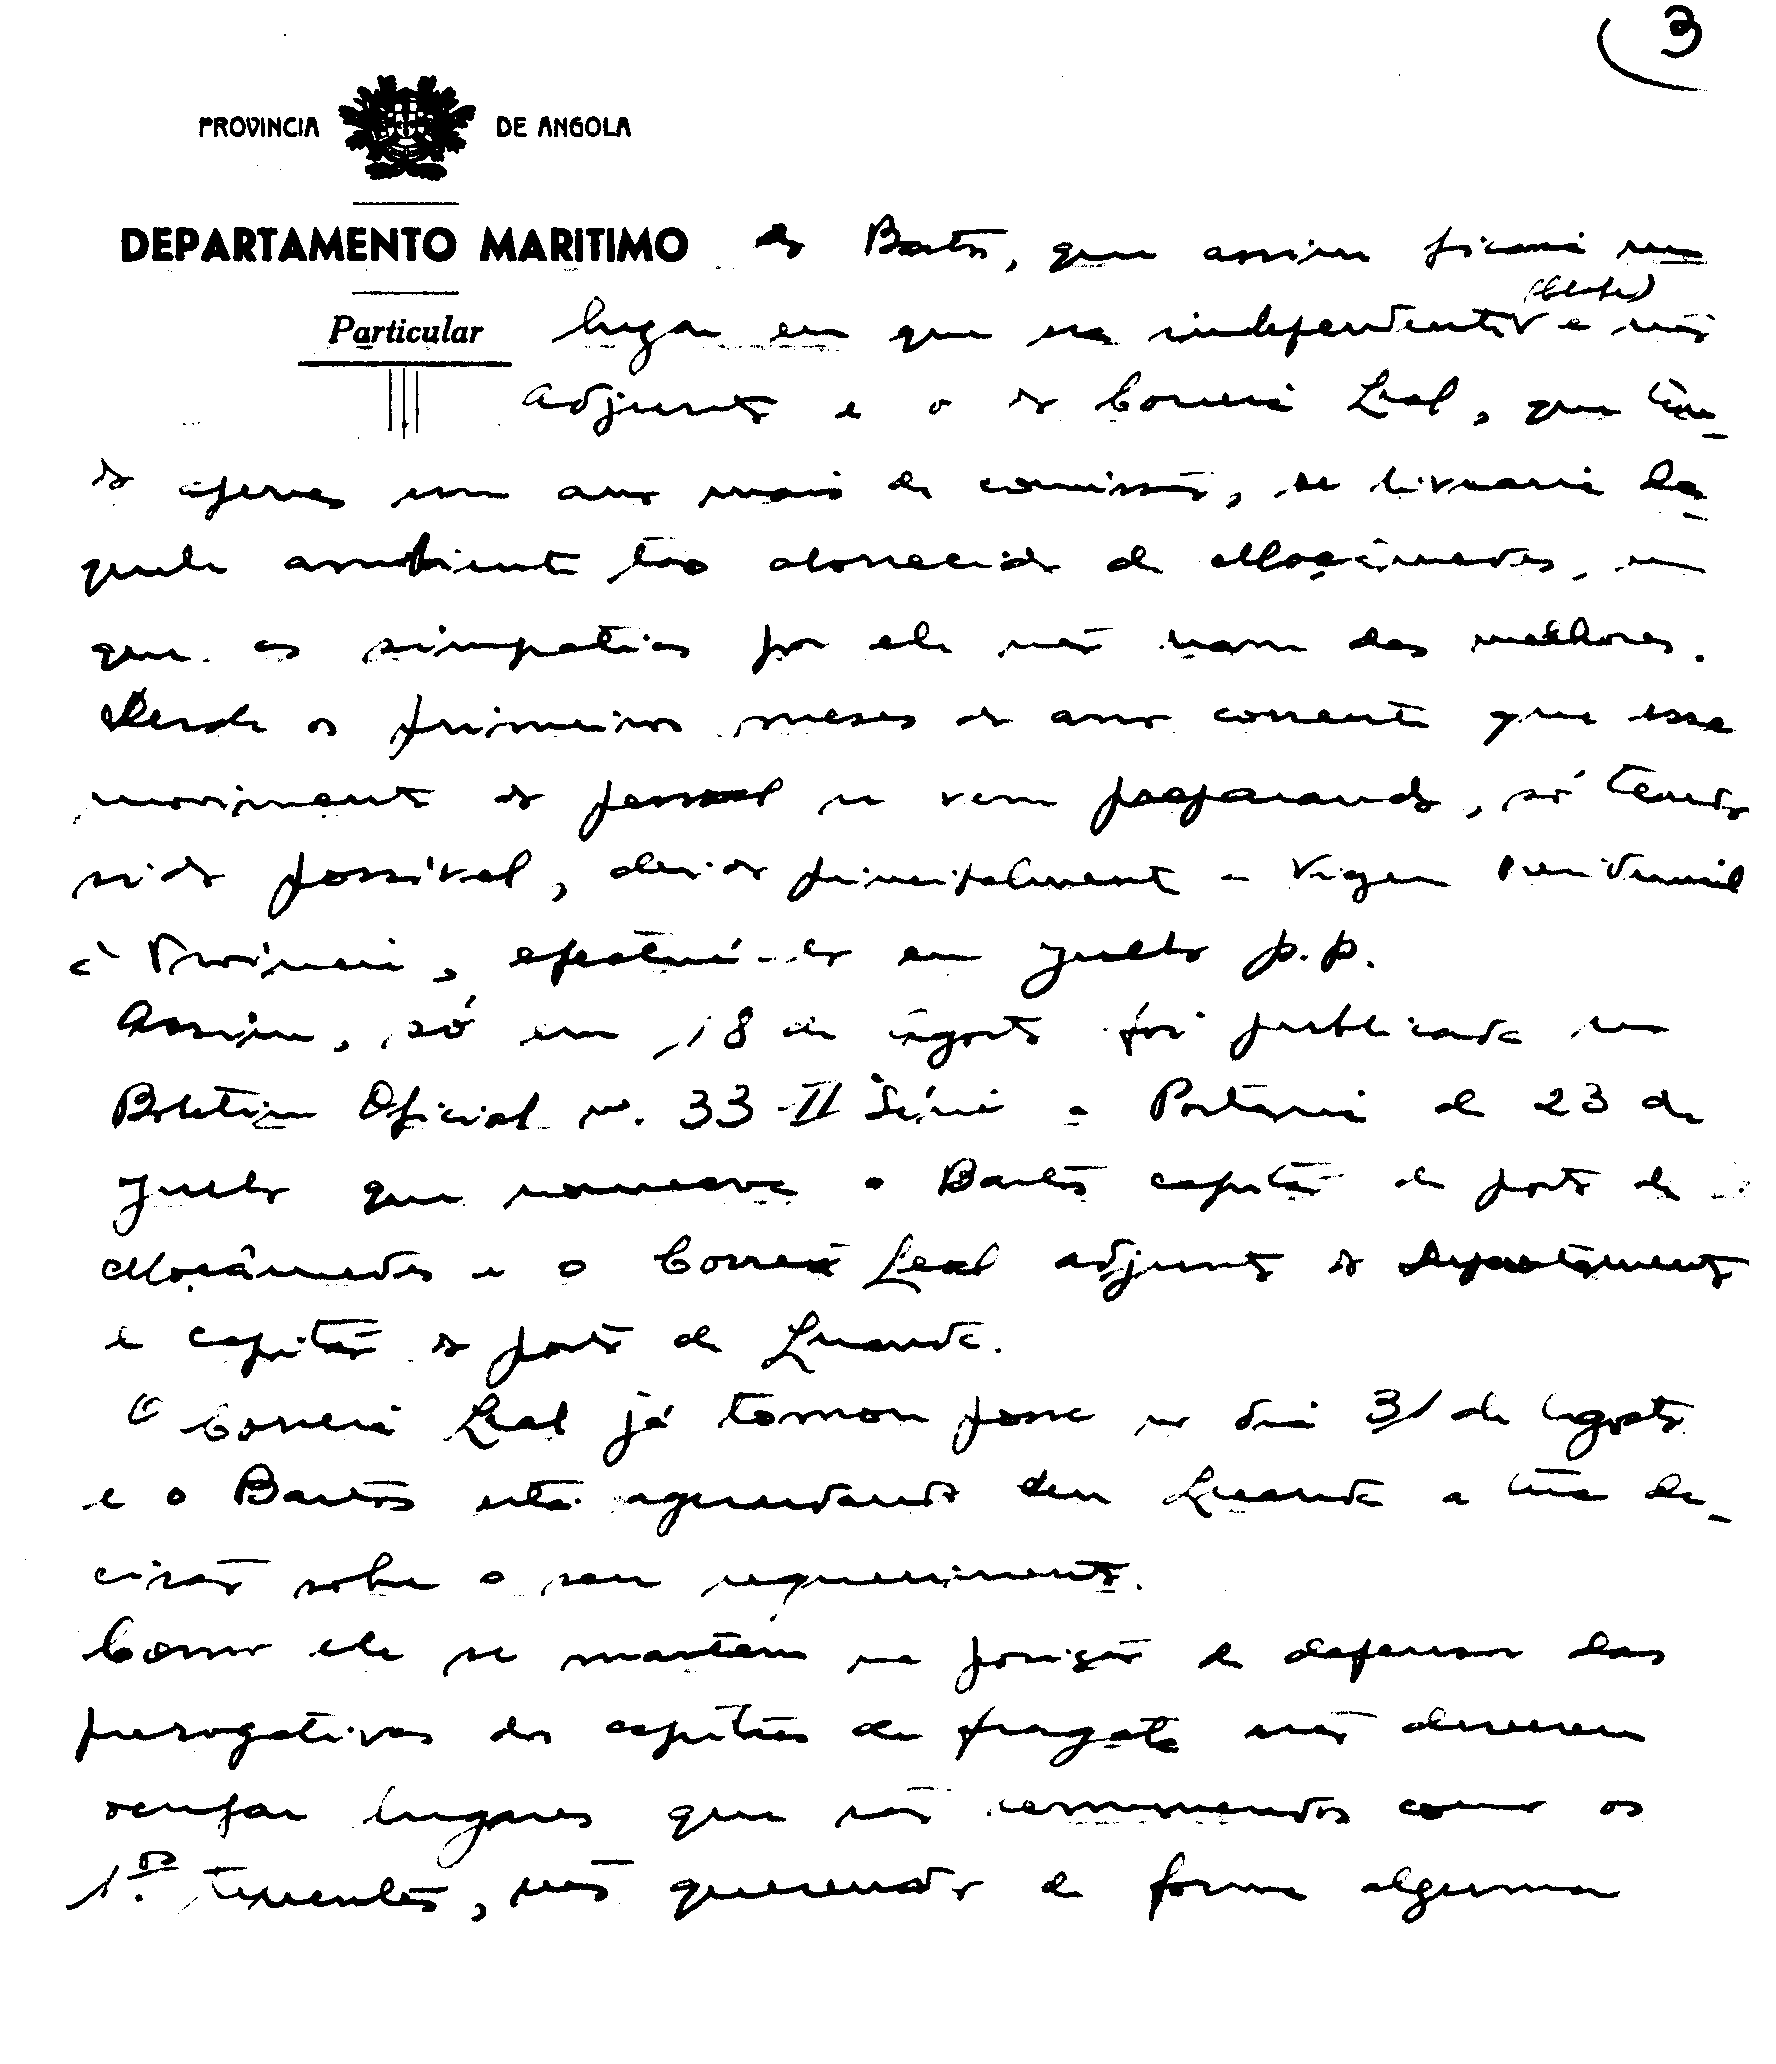 3
PROVINCIA DE ANGOLA
DEPARTAMENTO MARITIMO
Particular
do Bastos, que assim ficaria num
(chefe)
lugar em que era independente e não
adjunto e o do Correia Leal, que ten-
do apenas um ano mais de comissão, se livraria da-
quele ambiente tão aborrecido de Moçâmedes, em
que as simpatias por ele não eram das melhores.
Desde os primeiros meses do ano corrente que esse
movimento de pessoal se vem preparando, só tendo
sido possível, devido principalmente a viagem presidencial
à Província, efectuá-lo em Julho p.p.
Assim, só em 18 de Agosto foi publicada no
Boletim Oficial nº. 33-II Série a Portaria de 23 de
Julho que nomeava o Bastos capitão do porto de
Moçâmedes e o Correia Leal adjunto do Departamento
e capitão do porto de Luanda.
O Correia Leal já tomou posse no dia 31 de Agosto
e o Bastos está aguardando em Luanda a tua de-
cisão sobre o seu requerimento.
Como ele se mantém na posição de defensor das
prerogativas dos capitães de fragata não deverem
ocupar lugares que são comuns como os
1.os tenentes, não querendo de forma alguma